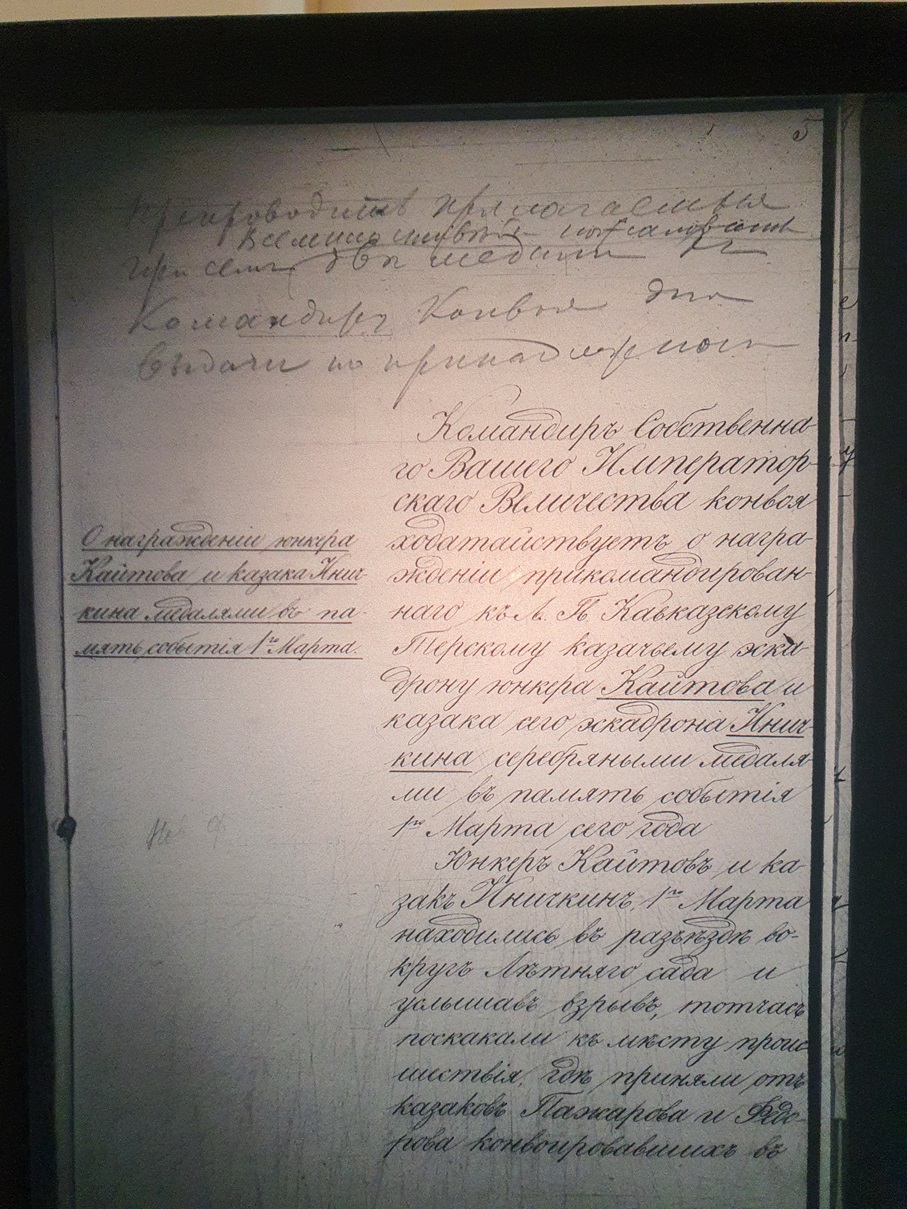 5
Препроводить прилагаемыя
Всемилостивѣйше пожалованныя
при семъ двѣ медали къ
Командиру Конвоя для
выдачи по принадлежности
О награжденіи юнкера
Кайтова и казака Инич-
кина медалями въ па-
мять событія 1го Марта.
Командиръ Собственна-
го Вашего Император-
скаго Величества конвоя
ходатайствуетъ о награ-
жденіи прикомандирован-
наго къ Л. Гв. Кавказскому
Терскому казачьему эска-
дрону юнкера Кайтова и
казака сего эскадрона Инич-
кина серебряными медаля-
ми въ память событія
1го Марта сего года
Юнкеръ Кайтовъ и ка-
закъ Иничкинъ, 1го Марта
находились въ разъѣздѣ во-
кругъ Лѣтняго сада и
услышавъ взрывъ, тотчасъ
поскакали къ мѣсту проис
шествія, гдѣ приняли отъ
казаковъ Пажарова и Федо-
рова конвоировавшихъ въ